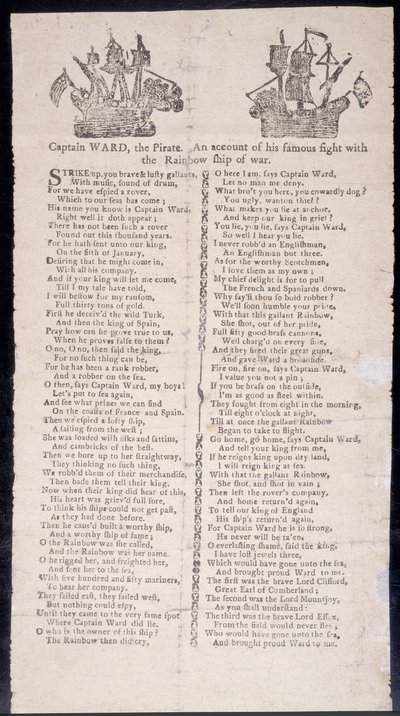 Captain WARD, the Pirate. An account of his famous fight with
the Rainbow ſhip of war.
STRIKE up, you brave & luſty gallants,
With muſic, ſound of drum,
For we have eſpied a rover,
Which to our ſeas has come;
His name you know is Captain Ward,
Right well it doth appear;
There has not been ſuch a rover
Found out this thouſand years.
For he hath ſent unto our king,
On the ſixth of January,
Deſiring that he might come in,
With all his company.
And if your king will let me come,
Till I my tale have told,
I will beſtow for my ranſom,
Full thirty tons of gold.
Firſt he deceiv'd the wild Turk,
And then the king of Spain,
Pray how can he prove true to us,
When he proves falſe to them?
O no, O no, then ſaid the king,
For no ſuch thing can be,
For he has been a rank robber,
And a robber on the ſea.
O then, ſays Captain Ward, my boys!
Let's put to ſea again,
And ſee what prizes we can find
On the coaſts of France and Spain.
Then we eſpied a lofty ſhip,
A ſailing from the weſt;
She was loaded with ſilks and ſattins,
And cambricks of the beſt.
Then we bore up to her ſtraightway,
They thinking no ſuch thing,
We robb'd them of their merchandiſe,
Then bade them tell their king.
Now when their king did hear of this,
His heart was griev'd full ſore,
To think his ſhips could not get paſt,
As they had done before.
Then he caus'd built a worthy ſhip,
And a worthy ſhip of fame;
O the Rainbow was ſhe called,
And the Rainbow was her name.
O he rigged her, and freighted her,
And ſent her to the ſea,
With five hundred and fifty mariners,
To bear her company.
They ſailed eaſt, they ſailed weſt,
But nothing could eſpy,
Until they came to the very ſame ſpot
Where Captain Ward did lie.
O who is the owner of this ſhip?
The Rainbow then did cry,
O here I am, ſays Captain Ward,
Let no man me deny.
What bro't you here, you cowardly dog?
You ugly, wanton thief?
What makes you lie at anchor,
And keep our king in grief?
You lie, you lie, ſays Captain Ward,
So well I hear you lie.
I never robb'd an Engliſhman,
An Engliſhman but three.
As for the worthy Scotchmen,
I love them as my own;
My chief delight is for to pull
The French and Spaniards down.
Why ſay'ſt thou ſo bold robber?
We'll ſoon humble your pride,
With that this gallant Rainbow,
She ſhot, out of her pride,
Full fifty good braſs cannons,
Well charg'd on every ſide,
And they fired their great guns,
And gave Ward a broadſide.
Fire on, fire on, ſays Captain Ward,
I value you not a pin;
If you be braſs on the outſide,
I'm as good as ſteel within.
They fought from eight in the morning,
Till eight o'clock at night,
Till at once the gallant Rainbow
Began to take to flight.
Go home, go home, ſays Captain Ward,
And tell your king from me,
If he reigns king upon dry land,
I will reign king at ſea.
With that the gallant Rainbow,
She ſhot, and ſhot in vain;
Then left the rover's company,
And home return'd again,
To tell our king of England
His ſhip's return'd again,
For Captain Ward he is ſo ſtrong,
He never will be ta'en,
O everlaſting ſhame, ſaid the king,
I have loſt jewels three,
Which would have gone unto the ſea,
And brought proud Ward to me.
The firſt was the brave Lord Clifford,
Great Earl of Cumberland;
The ſecond was the Lord Mountjoy,
As you ſhall underſtand:
The third was the brave Lord Eſſex,
From the field would never flee;
Who would have gone unto the ſea,
And brought proud Ward to me.